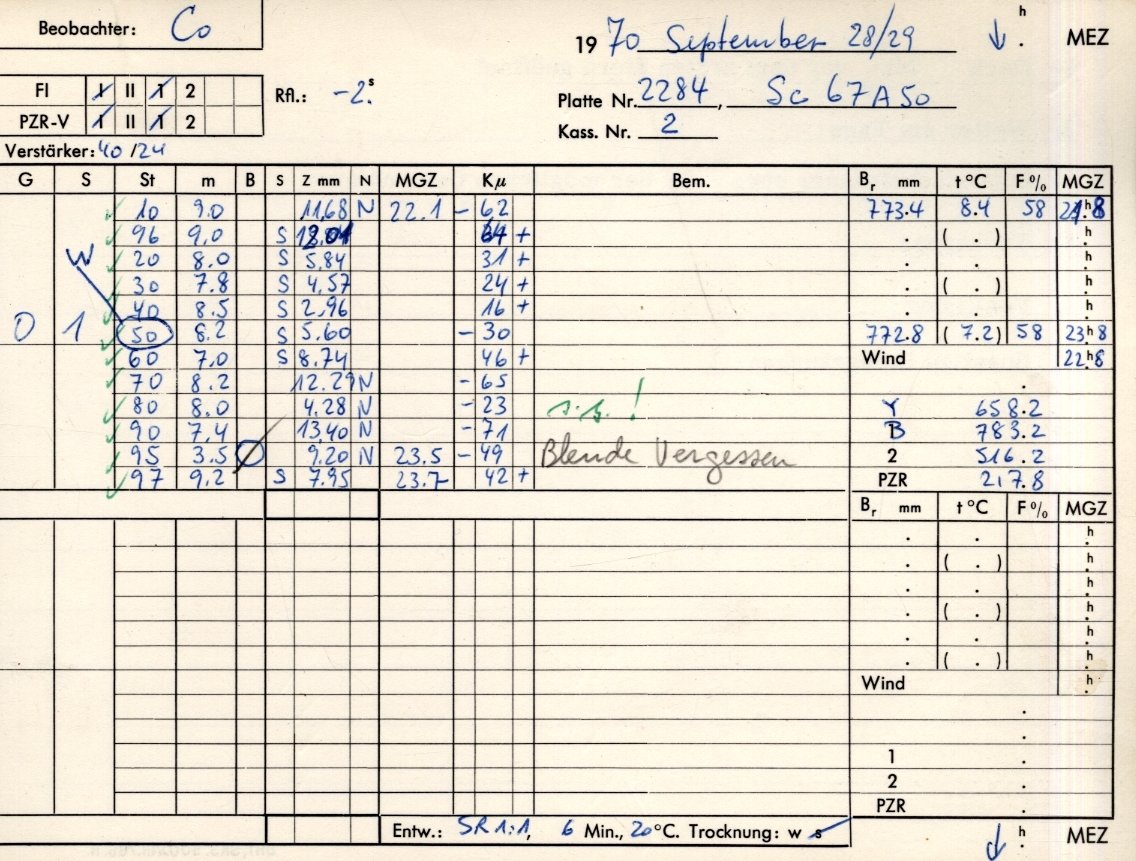 Beobachter: Co
19 70 September 28/29 h . MEZ
FI I II 1 2 Rfl.: -2.s Platte Nr. 2284, Sc 67A50
PZR-V I II 1 2 Kass. Nr. 2
Verstärker: 40/24
G S St m B S Z mm N MGZ Kμ Bem. Br mm t°C F% MGZ
10 9.0 11.68 N 22.1 - 62 773.4 8.4 58 h8
96 9.0 S + . ( . ) h.
W 20 8.0 S 5.84 31 + . . h.
30 7.8 S 4.57 24 + . ( . ) h.
40 8.5 S 2.96 16 + . . h.
0 1 50 8.2 S 5.60 - 30 772.8 ( 7.2) 58 23h8
60 7.0 S 8.74 46 + Wind 22h8
70 8.2 12.29 N - 65 .
80 8.0 4.28 N - 23 Y 658.2
90 7.4 13.40 N - 71 B 783.2
95 3.5 9.20 N 23.5 - 49 Blende Vergessen 2 516.2
97 9.2 S 7.95 23.7 42 + PZR 217.8
Br mm t°C F% MGZ
. . h.
. ( . ) h.
. . h.
. ( . ) h.
. . h.
. ( . ) h.
Wind h.
.
.
1 .
2 .
PZR .
Entw.: SR 1:1, 6 Min., 20°C. Trocknung: w s h . MEZ